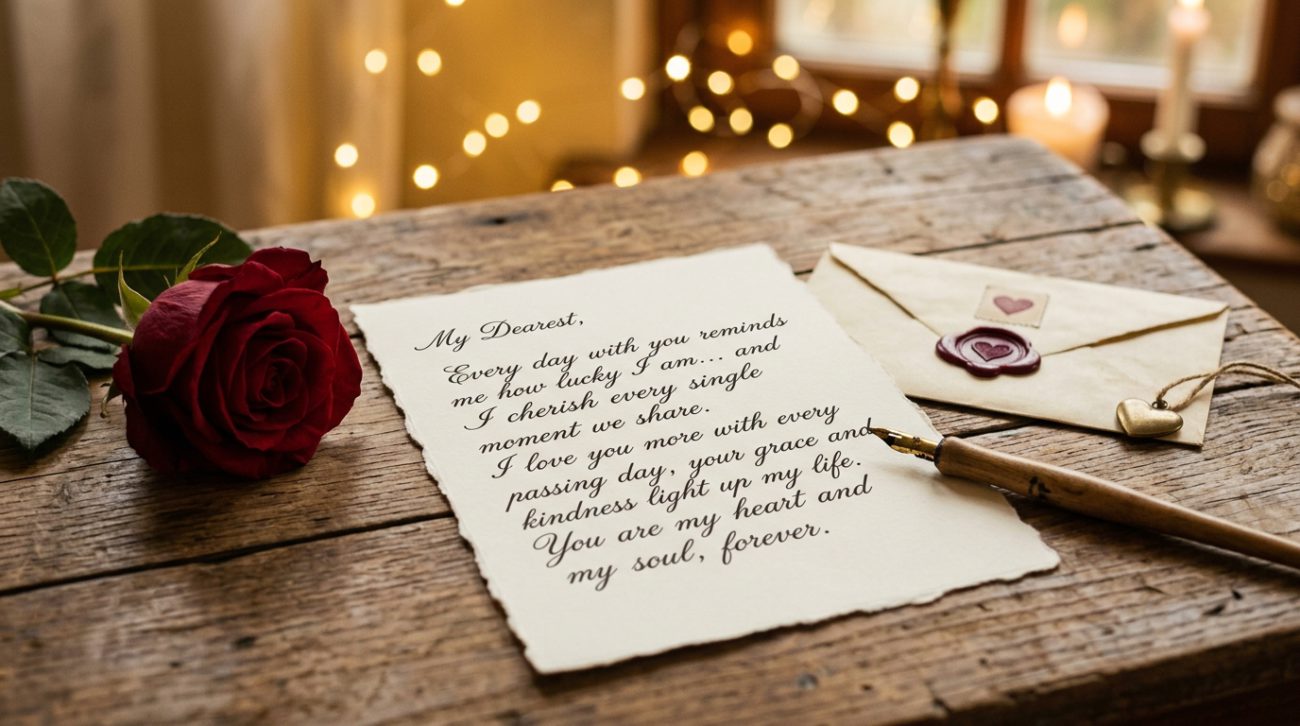 My Dearest,
Every day with you reminds
me how lucky I am... and
I cherish every single
moment we share.
I love you more with every
passing day, your grace and
kindness light up my life.
You are my heart and
my soul, forever.